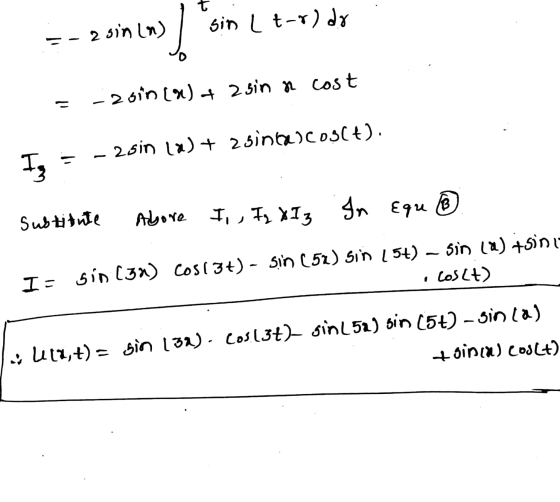 = - 2 sin(x) ∫₀ᵗ sin(t-r) dr
= -2 sin(x) + 2 sin x cos t
I₃ = - 2 sin(x) + 2 sin(x) cos(t).
Substitute Above I₁, I₂ & I₃ In Equ Ⓑ
I = sin(3x) cos(3t) - sin(5x) sin(5t) - sin(x) + sin(
. cos(t)
∴ U(x,t) = sin(3x). cos(3t) - sin(5x) sin(5t) - sin(x)
+ sin(x) cos(t)